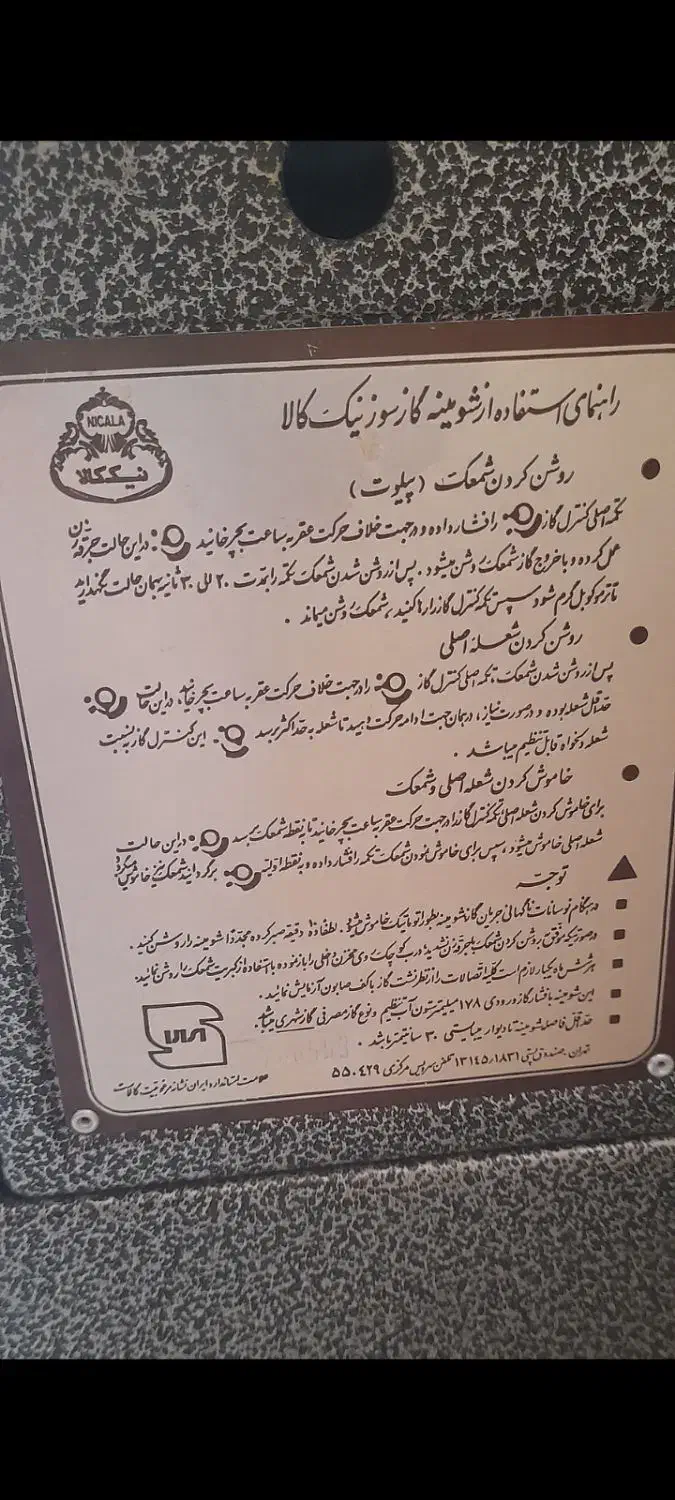 راهنمای استفاده از شومینه گازسوز نیک کالا
NICALA
نیک کالا
روشن کردن شمعک (پیلوت)
تکمه اصلی کنترل گاز را فشار داده و در جهت خلاف حرکت عقربه ساعت بچرخانید در این حالت جرقه زن
عمل کرده و با خروج گاز شمعک روشن میشود . پس از روشن شدن شمعک تکمه را بمدت ۲۰ الی ۳۰ ثانیه بهمان حالت نگهدارید
تا ترموکوپل گرم شود سپس تکمه کنترل گاز را رها کنید ، شمعک روشن میماند .
روشن کردن شعله اصلی
پس از روشن شدن شمعک ، تکمه اصلی کنترل گاز را در جهت خلاف حرکت عقربه ساعت بچرخانید ، در این حالت
حداقل شعله بوده و در صورت نیاز ، در همان جهت ادامه حرکت دهید تا شعله به حداکثر برسد . این کنترل گاز به نسبت
شعله دلخواه قابل تنظیم میباشد .
خاموش کردن شعله اصلی و شمعک
برای خاموش کردن شعله اصلی تکمه کنترل گاز را در جهت حرکت عقربه ساعت بچرخانید تا به نقطه شمعک برسد در این حالت
شعله اصلی خاموش میشود ، سپس برای خاموش نمودن شمعک تکمه را فشار داده و به نقطه اولیه برگردانید شمعک نیز خاموش میگردد
توجه
در هنگام نوسانات ناگهانی جریان گاز شومینه بطور اتوماتیک خاموش میشود . لطفاً دقیقه صبر کرده مجدداً شومینه را روشن کنید .
در صورتیکه موفق به روشن کردن شمعک با جرقه زن نشدید درب کوچک روی مخزن داخلی را باز نموده با استفاده از کبریت شمعک را روشن نمائید .
هر شش ماه یکبار لازم است کلیه اتصالات را از نظر نشت گاز با کف صابون آزمایش نمائید .
این شومینه با فشار گاز ورودی ۱۷۸ میلیمتر ستون آب تنظیم و نوع گاز مصرفی گاز شهری میباشد
حداقل فاصله شومینه تا دیوار میبایستی ۳۰ سانتیمتر باشد .
تهران ، صندوق پستی ۱۸۳۱ر۱۳۱۴۵ تلفن سرویس مرکزی ۵۵۰۴۲۹
علامت استاندارد ایران نشانه مرغوبیت کالاست